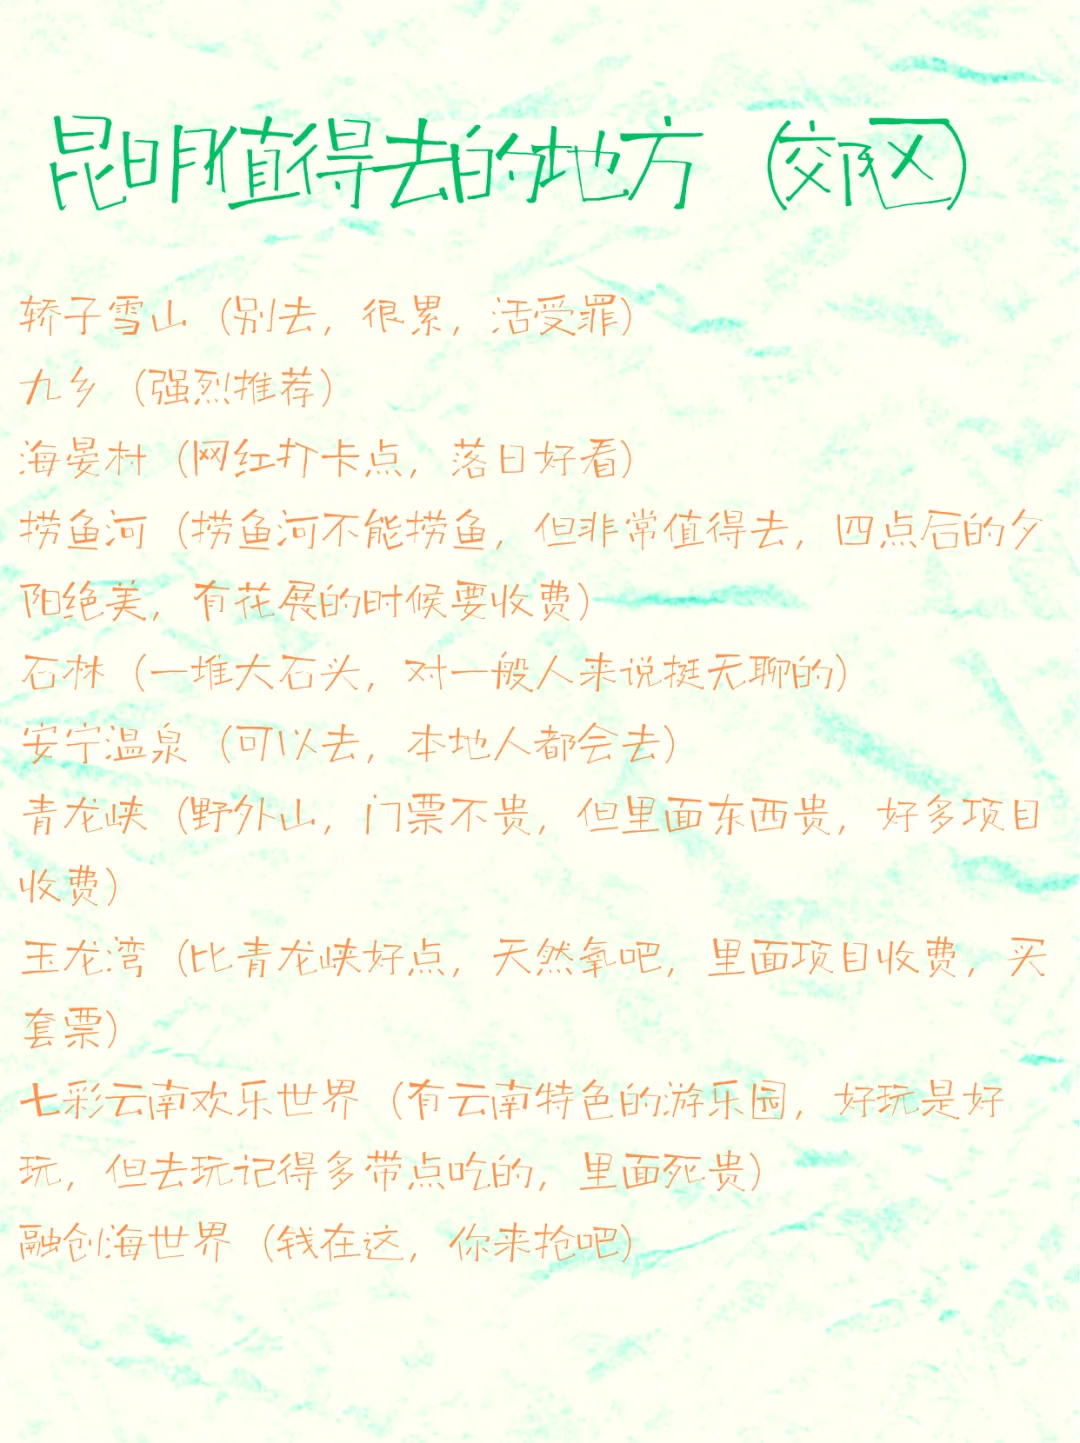 昆明值得去的地方（郊区）
轿子雪山（别去，很累，活受罪）
九乡（强烈推荐）
海晏村（网红打卡点，落日好看）
捞鱼河（捞鱼河不能捞鱼，但非常值得去，四点后的夕
阳绝美，有花展的时候要收费）
石林（一堆大石头，对一般人来说挺无聊的）
安宁温泉（可以去，本地人都会去）
青龙峡（野外山，门票不贵，但里面东西贵，好多项目
收费）
玉龙湾（比青龙峡好点，天然氧吧，里面项目收费，买
套票）
七彩云南欢乐世界（有云南特色的游乐园，好玩是好
玩，但去玩记得多带点吃的，里面死贵）
融创海世界（钱在这，你来抢吧）